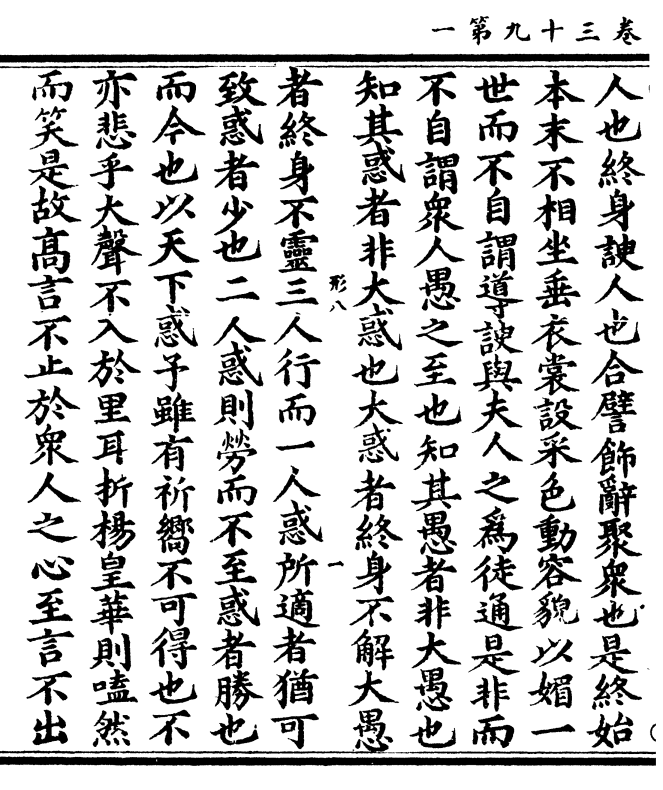 卷三十九第一
人也終身諛人也合譬飾辭聚衆也是終始
本末不相坐垂衣裳設采色動容貌以媚一
世而不自謂導諛與夫人之爲徒通是非而
不自謂衆人愚之至也知其愚者非大愚也
知其惑者非大惑也大惑者終身不解大愚
形八
一
者終身不靈三人行而一人惑所適者猶可
致惑者少也二人惑則勞而不至惑者勝也
而今也以天下惑予雖有祈嚮不可得也不
亦悲乎大聲不入於里耳折楊皇華則嗑然
而笑是故高言不止於衆人之心至言不出